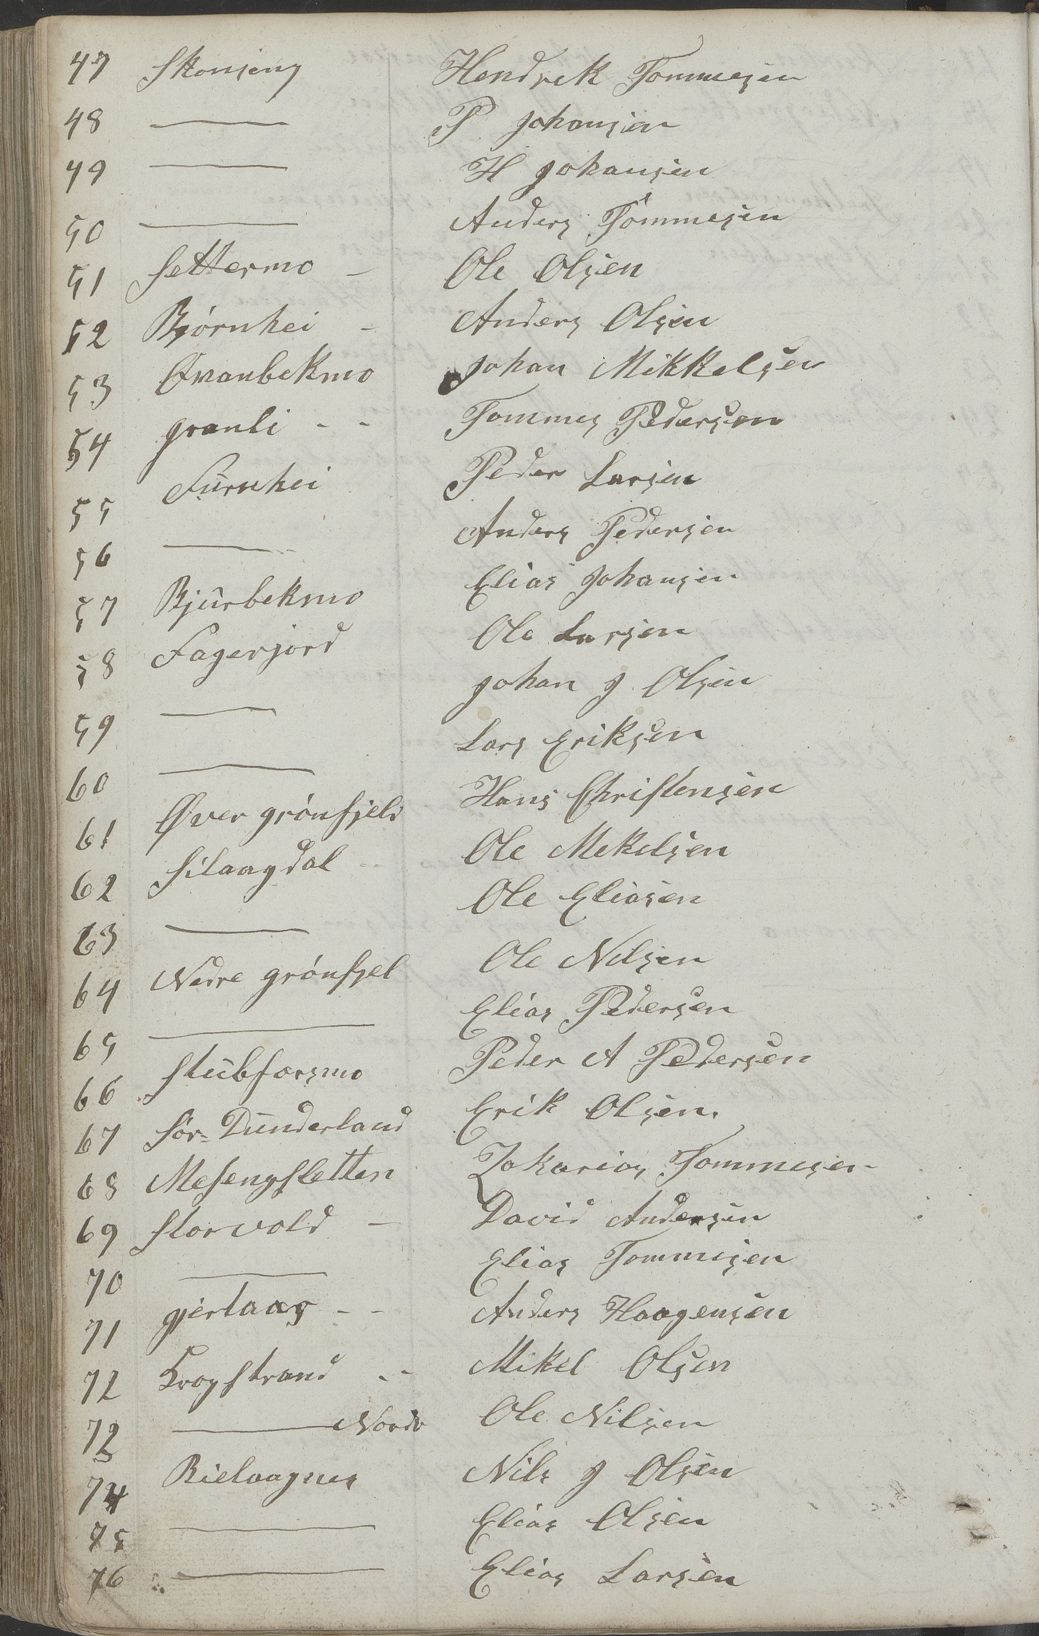 47 Skonseng Hendrek Tommesen
48 ——— P Johansen
49 ——— H Johansen
50 ——— Anders Tommesen
51 Settermo – Ole Olsen
52 Bjørnhei – Anders Olsen
53 Øvanbekmo Johan Mikkelsen
54 granli - - Tommes Pedersen
55 Furuhei Peder Larsen
56 ——— Anders Pedersen
57 Bjurbekmo Elias Johansen
58 Fagerjord Ole Larsen
59 ——— Johan J Olsen
60 ——— Lars Eriksen
61 Øver grónfjeld Hans Christensen
62 Silaagdal – Ole Mekelsen
63 ——— Ole Eliasen
64 Nedre grónfjel Ole Nilsen
65 ——— Elias Pedersen
66 Stubforsmo Peder A Pedersen
67 Sór-Dunderland Erik Olsen.
68 Mesengsletten Zakarias Tommesen
69 Storvold – David Andersen
70 ——— Elias Tommesen
71 gjertaas - - Anders Haagensen
72 Krogstrand - - Mikel Olsen
73 ——— Nordr Ole Nilsen
74 Bielaagnes Nils J Olsen
75 ——— Elias Olsen
76 ——— Elias Larsen